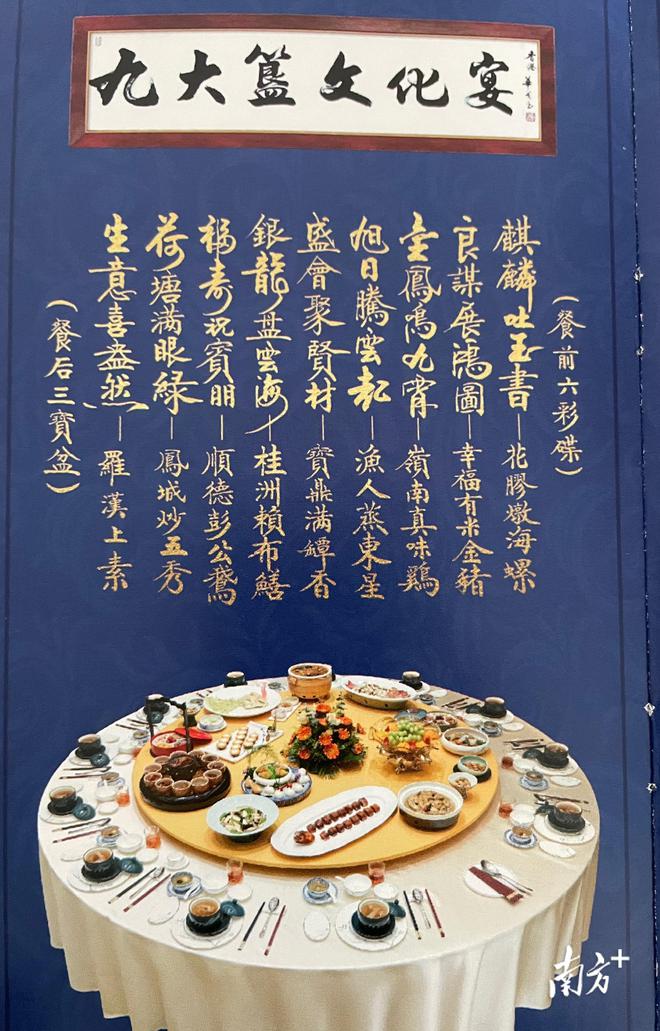 九大簋文化宴
香港
（餐前六彩碟）
麒麟吐玉書—花膠燉海螺
良謀展鴻圖—幸福有米金豬
金鳳鳴九霄—嶺南真味鷄
旭日騰雲起—漁人蒸東星
盛會聚賢材—寶鼎满罈香
銀龍盘雲海—桂洲賴布鱔
福寿祝賓朋—順德彭公鵞
荷塘满眼緑—鳳城炒五秀
生意喜盎然—羅漢上素
（餐后三寶盆）
南方+